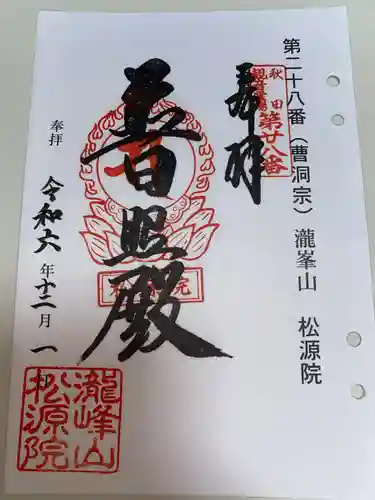 第二十八番（曹洞宗）瀧峯山　松源院
秋田
観音霊場
第廿八番
奉拝
普照殿
奉拝
令和六年十二月一日
瀧峰山
松源院